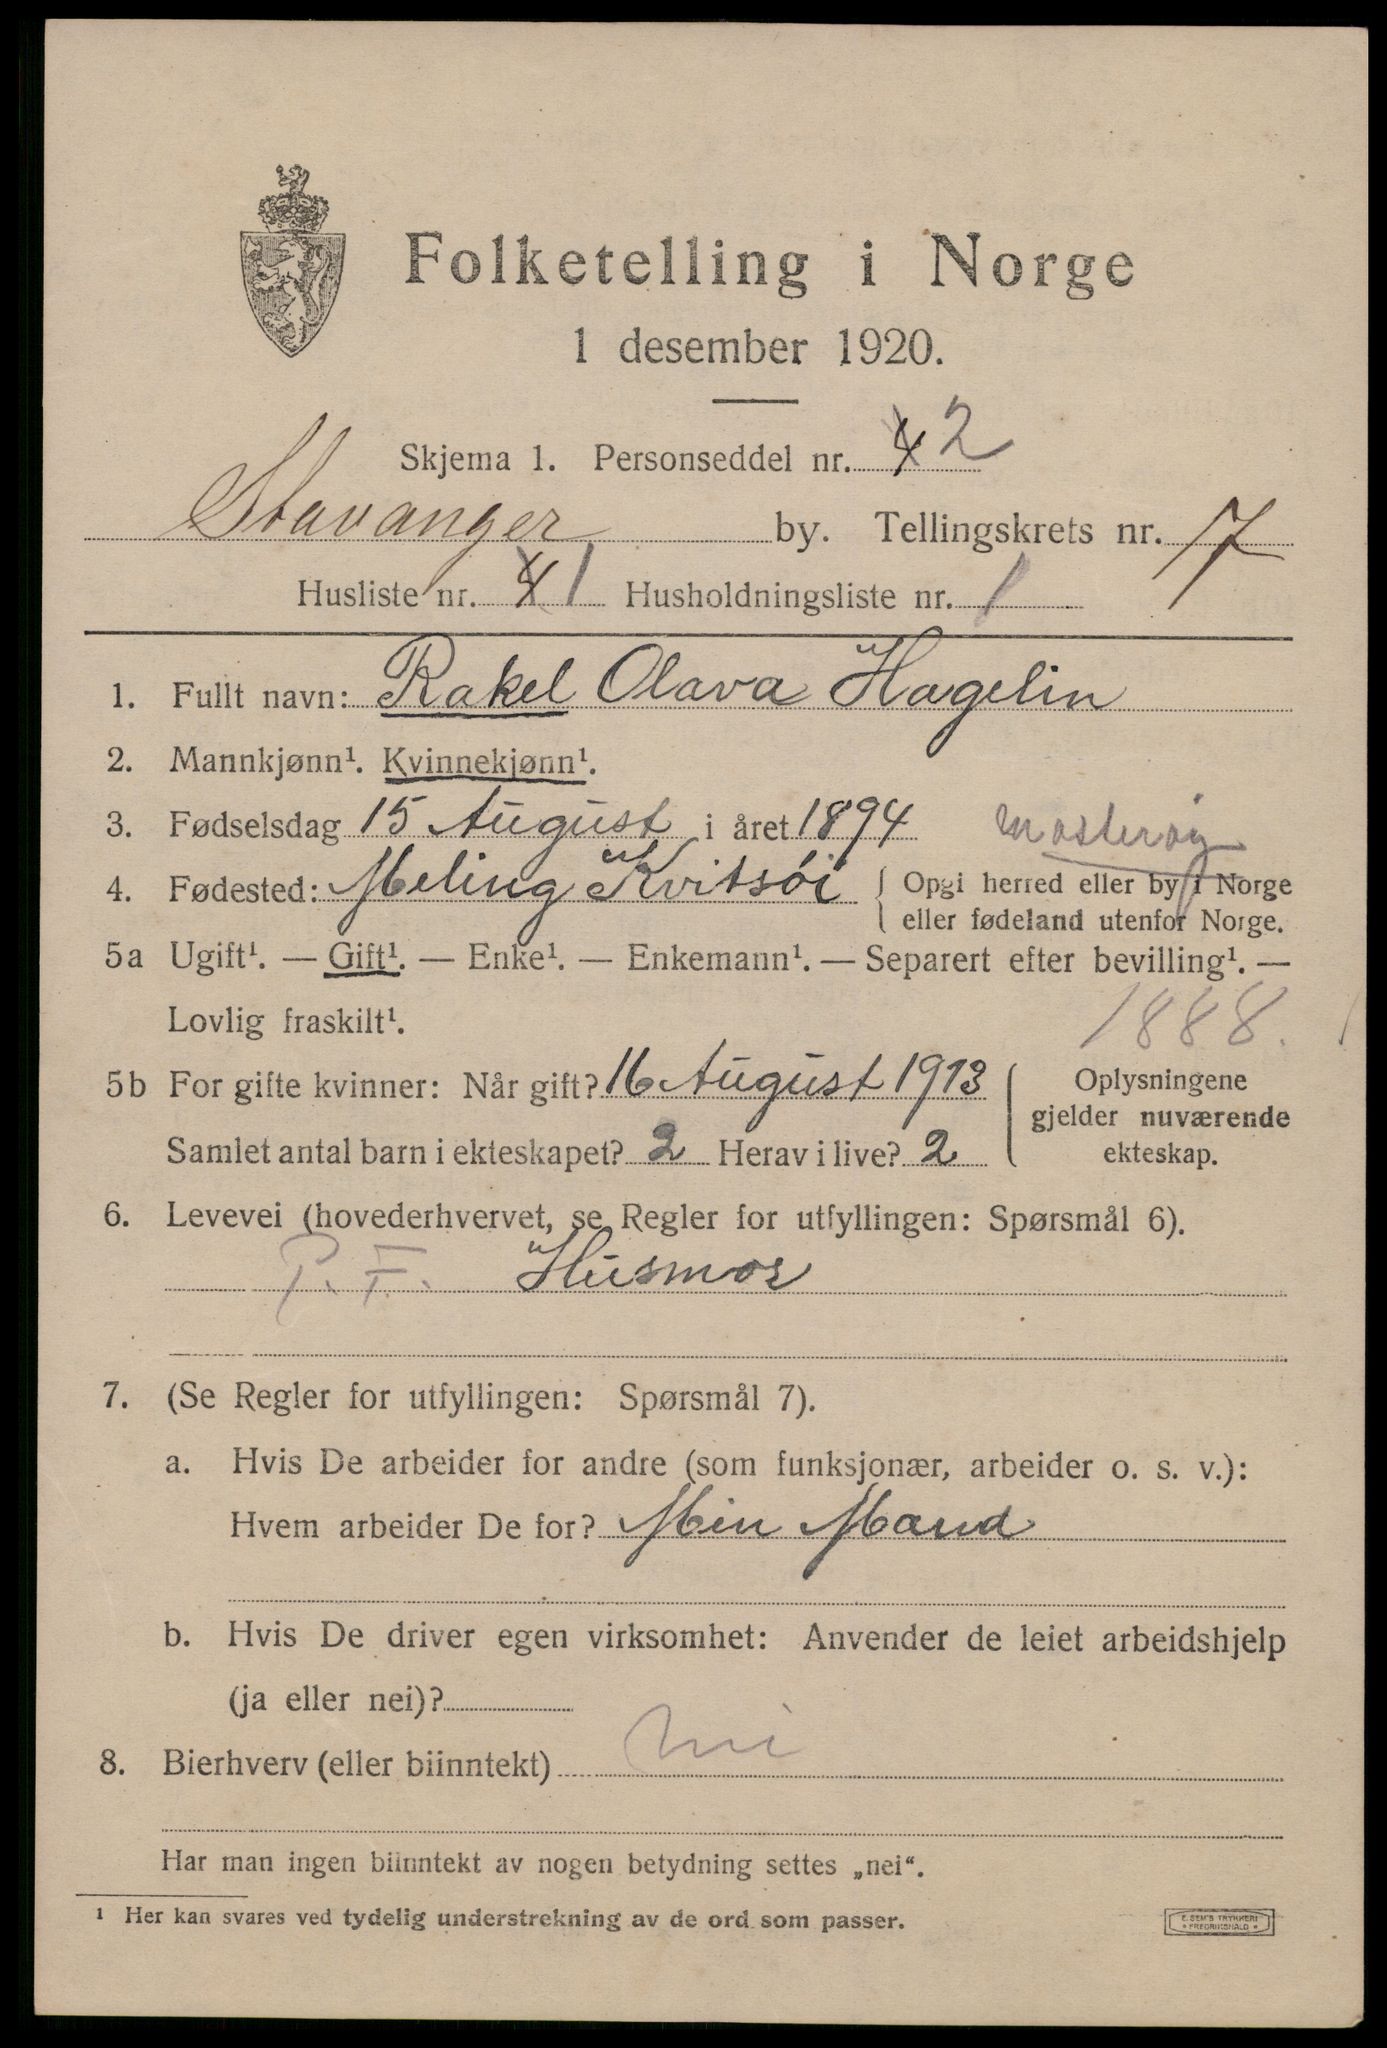 Folketelling i Norge
1 desember 1920.
Skjema 1. Personseddel nr. 4 2
Stavanger by. Tellingskrets nr. 17
Husliste nr. 4 1 Husholdningsliste nr. 1
1. Fullt navn: Rakel Olava Hagelin
2. Mannkjønn¹. Kvinnekjønn¹.
3. Fødselsdag 15 August i året 1894 Mosterøy
4. Fødested: Meling Kvitsöi { Opgi herred eller by i Norge
eller fødeland utenfor Norge.
5a Ugift¹. — Gift¹. — Enke¹. — Enkemann¹. — Separert efter bevilling¹. —
Lovlig fraskilt¹. 1888.
5b For gifte kvinner: Når gift? 16 August 1913 Oplysningene
gjelder nuværende
Samlet antal barn i ekteskapet? 2 Herav i live? 2 ekteskap.
6. Levevei (hovederhvervet, se Regler for utfyllingen: Spørsmål 6).
P. F. Husmor
7. (Se Regler for utfyllingen: Spørsmål 7).
a. Hvis De arbeider for andre (som funksjonær, arbeider o. s. v.):
Hvem arbeider De for? Min Mand
b. Hvis De driver egen virksomhet: Anvender de leiet arbeidshjelp
(ja eller nei)?
8. Bierhverv (eller biinntekt) nei
Har man ingen biinntekt av nogen betydning settes „nei“.
¹ Her kan svares ved tydelig understrekning av de ord som passer.
E. SEM'S TRYKKERI
FREDRIKSHALD